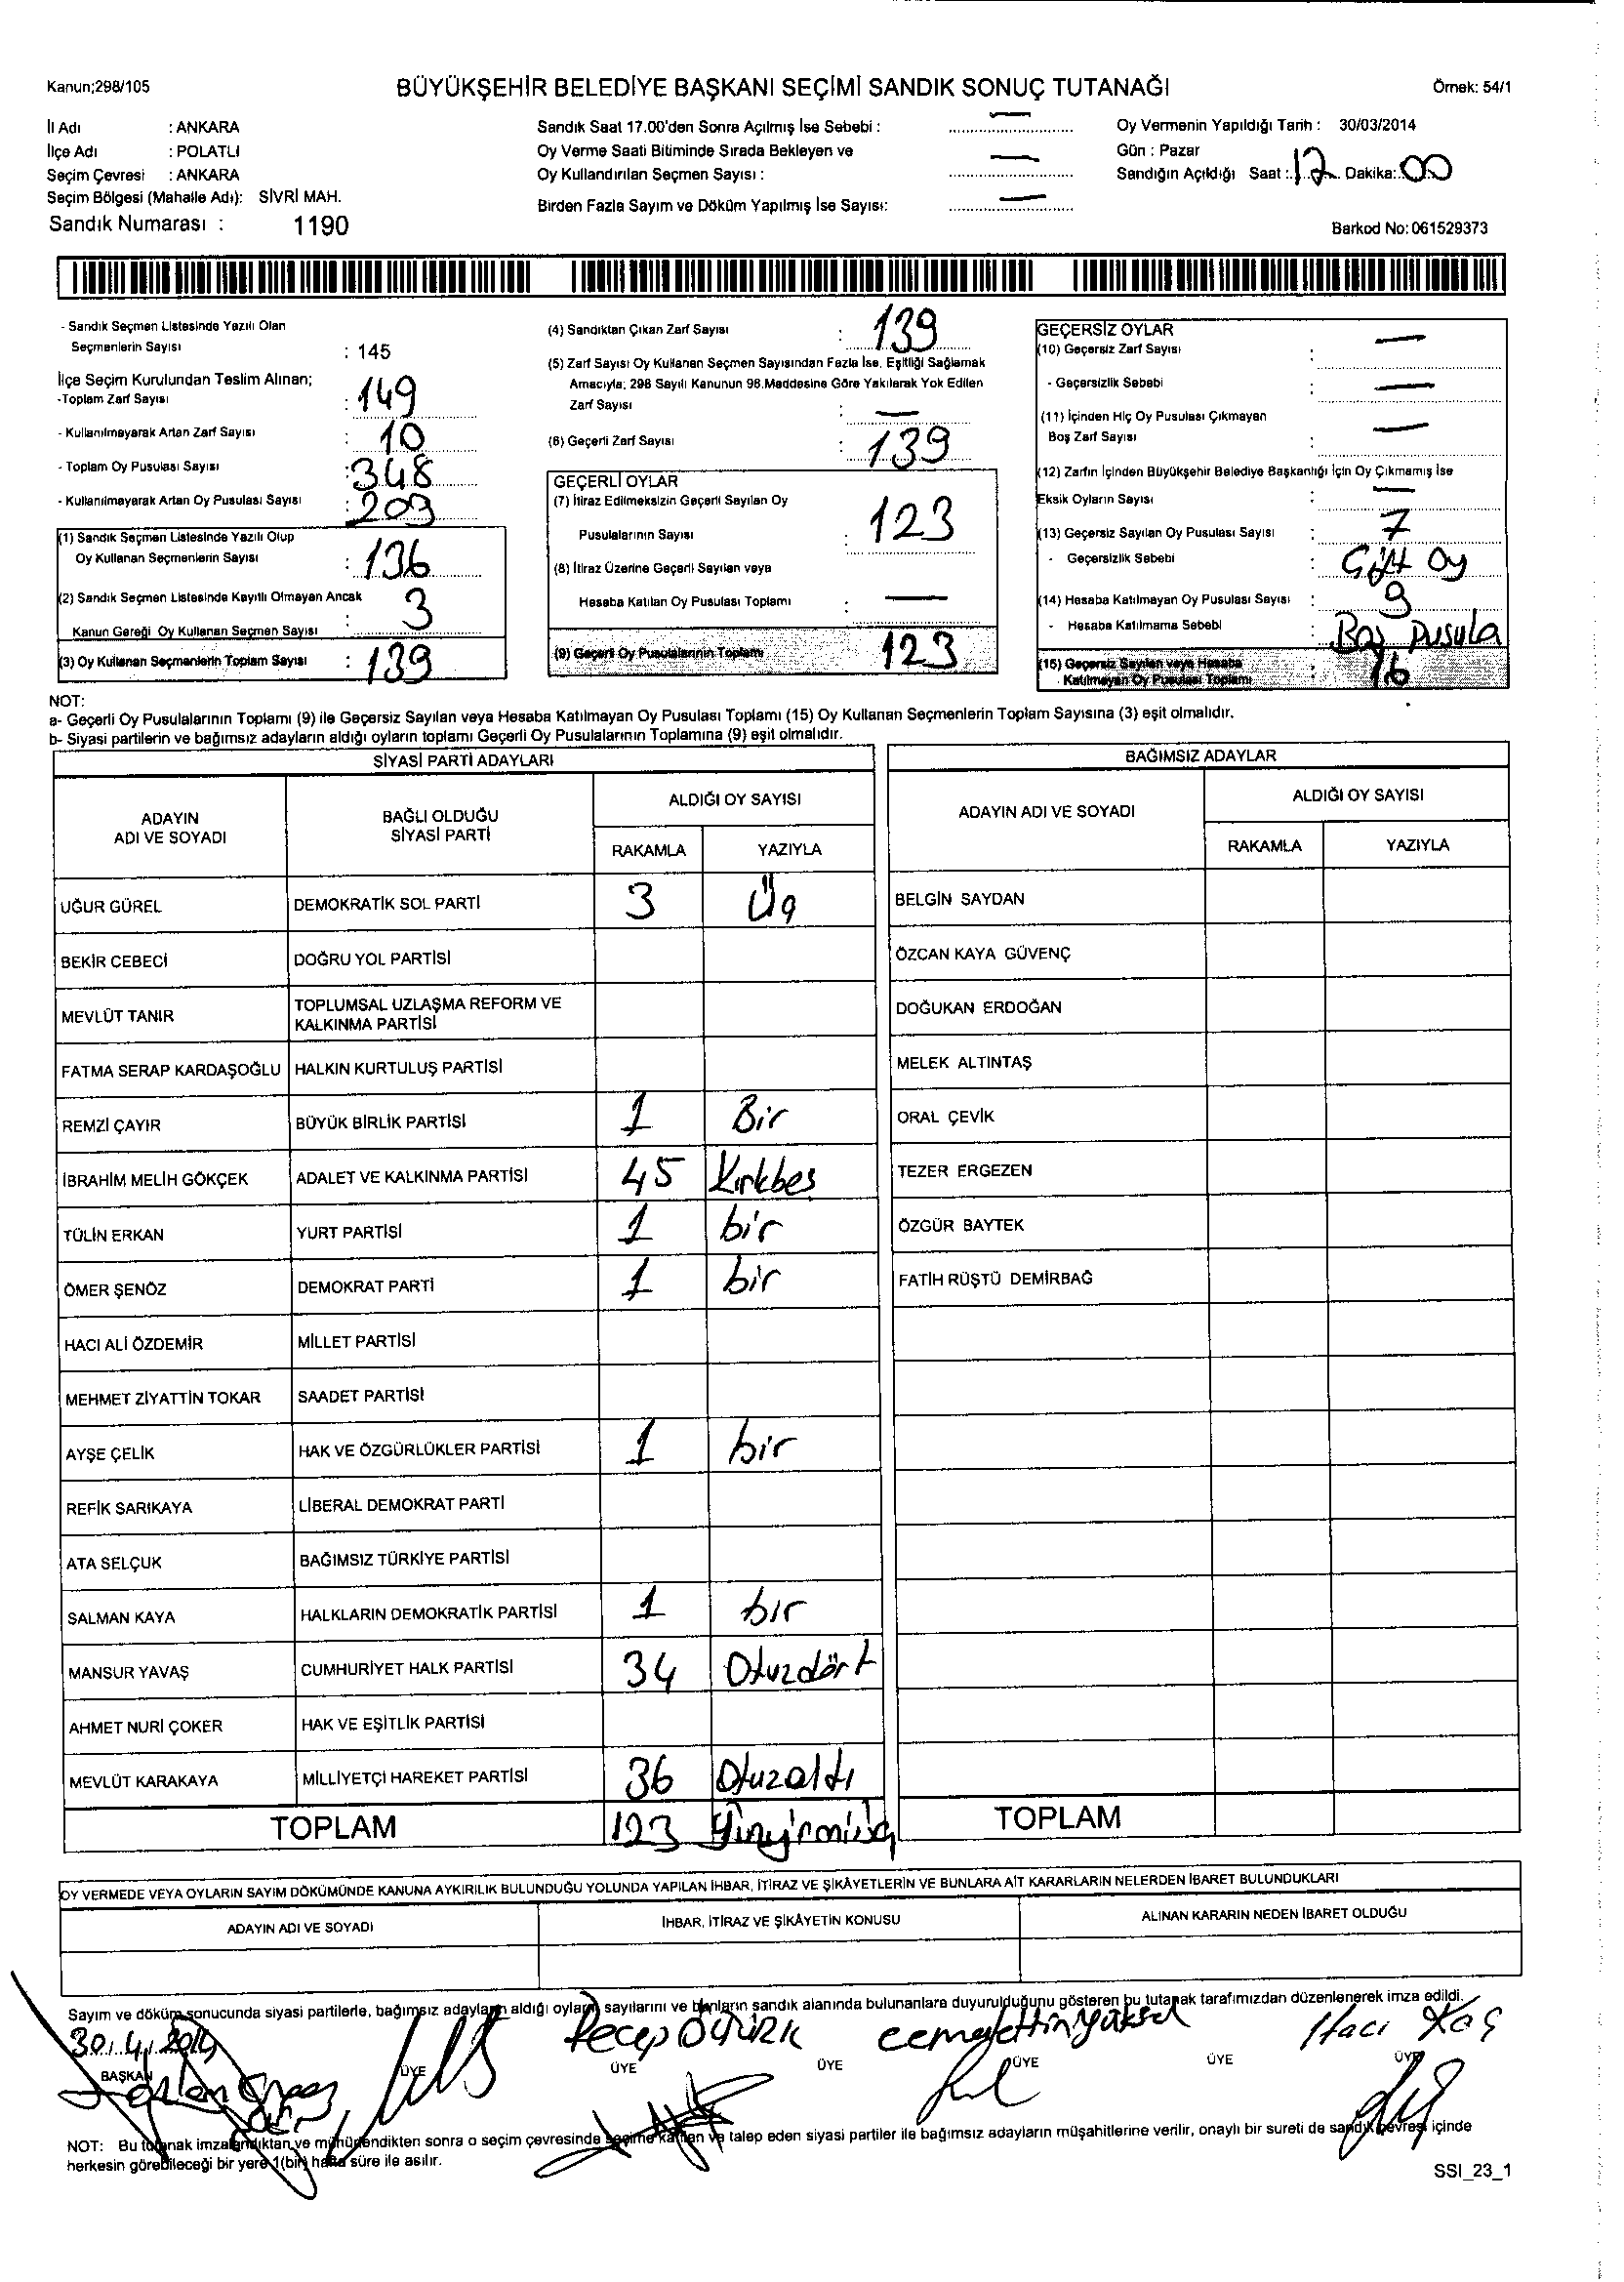 Kanun;298/105
BÜYÜKŞEHİR BELEDİYE BAŞKANI SEÇİMİ SANDIK SONUÇ TUTANAĞI
Örnek: 54/1
İl Adı : ANKARA
İlçe Adı : POLATLI
Seçim Çevresi : ANKARA
Seçim Bölgesi (Mahalle Adı): SİVRİ MAH.
Sandık Numarası : 1190
Sandık Saat 17.00'den Sonra Açılmış İse Sebebi : —
Oy Verme Saati Bitiminde Sırada Bekleyen ve
Oy Kullandırılan Seçmen Sayısı : —
Birden Fazla Sayım ve Döküm Yapılmış İse Sayısı: —
Oy Vermenin Yapıldığı Tarih : 30/03/2014
Gün : Pazar
Sandığın Açıldığı Saat : 17 Dakika: 00
Barkod No: 061529373
- Sandık Seçmen Listesinde Yazılı Olan
Seçmenlerin Sayısı : 145
İlçe Seçim Kurulundan Teslim Alınan;
-Toplam Zarf Sayısı : 149
- Kullanılmayarak Artan Zarf Sayısı : 10
- Toplam Oy Pusulası Sayısı : 348
- Kullanılmayarak Artan Oy Pusulası Sayısı : 203
(1) Sandık Seçmen Listesinde Yazılı Olup
Oy Kullanan Seçmenlerin Sayısı : 136
(2) Sandık Seçmen Listesinde Kayıtlı Olmayan Ancak
Kanun Gereği Oy Kullanan Seçmen Sayısı : 3
(3) Oy Kullanan Seçmenlerin Toplam Sayısı : 139
(4) Sandıktan Çıkan Zarf Sayısı : 139
(5) Zarf Sayısı Oy Kullanan Seçmen Sayısından Fazla İse, Eşitliği Sağlamak
Amacıyla; 298 Sayılı Kanunun 98.Maddesine Göre Yakılarak Yok Edilen
Zarf Sayısı : —
(6) Geçerli Zarf Sayısı : 139
GEÇERLİ OYLAR
(7) İtiraz Edilmeksizin Geçerli Sayılan Oy
Pusulalarının Sayısı : 123
(8) İtiraz Üzerine Geçerli Sayılan veya
Hesaba Katılan Oy Pusulası Toplamı : —
(9) Geçerli Oy Pusulalarının Toplamı 123
GEÇERSİZ OYLAR
(10) Geçersiz Zarf Sayısı : —
- Geçersizlik Sebebi : —
(11) İçinden Hiç Oy Pusulası Çıkmayan
Boş Zarf Sayısı : —
(12) Zarfın İçinden Büyükşehir Belediye Başkanlığı İçin Oy Çıkmamış İse
Eksik Oyların Sayısı : —
(13) Geçersiz Sayılan Oy Pusulası Sayısı : 7
- Geçersizlik Sebebi : Çift Oy
(14) Hesaba Katılmayan Oy Pusulası Sayısı : 9
- Hesaba Katılmama Sebebi : Boş pusula
(15) Geçersiz Sayılan veya Hesaba
Katılmayan Oy Pusulası Toplamı : 16
NOT:
a- Geçerli Oy Pusulalarının Toplamı (9) ile Geçersiz Sayılan veya Hesaba Katılmayan Oy Pusulası Toplamı (15) Oy Kullanan Seçmenlerin Toplam Sayısına (3) eşit olmalıdır.
b- Siyasi partilerin ve bağımsız adayların aldığı oyların toplamı Geçerli Oy Pusulalarının Toplamına (9) eşit olmalıdır.
SİYASİ PARTİ ADAYLARI
ADAYIN ADI VE SOYADI
BAĞLI OLDUĞU SİYASİ PARTİ
ALDIĞI OY SAYISI
RAKAMLA YAZIYLA
UĞUR GÜREL DEMOKRATİK SOL PARTİ 3 Üç
BEKİR CEBECİ DOĞRU YOL PARTİSİ
MEVLÜT TANIR TOPLUMSAL UZLAŞMA REFORM VE KALKINMA PARTİSİ
FATMA SERAP KARDAŞOĞLU HALKIN KURTULUŞ PARTİSİ
REMZİ ÇAYIR BÜYÜK BİRLİK PARTİSİ 1 Bir
İBRAHİM MELİH GÖKÇEK ADALET VE KALKINMA PARTİSİ 45 Kırkbeş
TÜLİN ERKAN YURT PARTİSİ 1 bir
ÖMER ŞENÖZ DEMOKRAT PARTİ 1 bir
HACI ALİ ÖZDEMİR MİLLET PARTİSİ
MEHMET ZİYATTİN TOKAR SAADET PARTİSİ
AYŞE ÇELİK HAK VE ÖZGÜRLÜKLER PARTİSİ 1 bir
REFİK SARIKAYA LİBERAL DEMOKRAT PARTİ
ATA SELÇUK BAĞIMSIZ TÜRKİYE PARTİSİ
SALMAN KAYA HALKLARIN DEMOKRATİK PARTİSİ 1 bir
MANSUR YAVAŞ CUMHURİYET HALK PARTİSİ 34 Otuzdört
AHMET NURİ ÇOKER HAK VE EŞİTLİK PARTİSİ
MEVLÜT KARAKAYA MİLLİYETÇİ HAREKET PARTİSİ 36 Otuzaltı
TOPLAM 123
BAĞIMSIZ ADAYLAR
ADAYIN ADI VE SOYADI
ALDIĞI OY SAYISI
RAKAMLA YAZIYLA
BELGİN SAYDAN
ÖZCAN KAYA GÜVENÇ
DOĞUKAN ERDOĞAN
MELEK ALTINTAŞ
ORAL ÇEVİK
TEZER ERGEZEN
ÖZGÜR BAYTEK
FATİH RÜŞTÜ DEMİRBAĞ
TOPLAM
OY VERMEDE VEYA OYLARIN SAYIM DÖKÜMÜNDE KANUNA AYKIRILIK BULUNDUĞU YOLUNDA YAPILAN İHBAR, İTİRAZ VE ŞİKÂYETLERİN VE BUNLARA AİT KARARLARIN NELERDEN İBARET BULUNDUKLARI
ADAYIN ADI VE SOYADI
İHBAR, İTİRAZ VE ŞİKÂYETİN KONUSU
ALINAN KARARIN NEDEN İBARET OLDUĞU
Sayım ve döküm sonucunda siyasi partilerle, bağımsız adayların aldığı oyların sayılarını ve bunların sandık alanında bulunanlara duyurulduğunu gösteren bu tutanak tarafımızdan düzenlenerek imza edildi.
30.4.2014 Recep Öztürk Cemalettin Yüksel Hacı Koç
BAŞKAN ÜYE ÜYE ÜYE ÜYE ÜYE ÜYE
NOT: Bu tutanak imzalandıktan ve mühürlendikten sonra o seçim çevresinde seçime katılan ve talep eden siyasi partiler ile bağımsız adayların müşahitlerine verilir, onaylı bir sureti de sandık çevresi içinde
herkesin görebileceği bir yere 1(bir) hafta süre ile asılır.
SSI_23_1